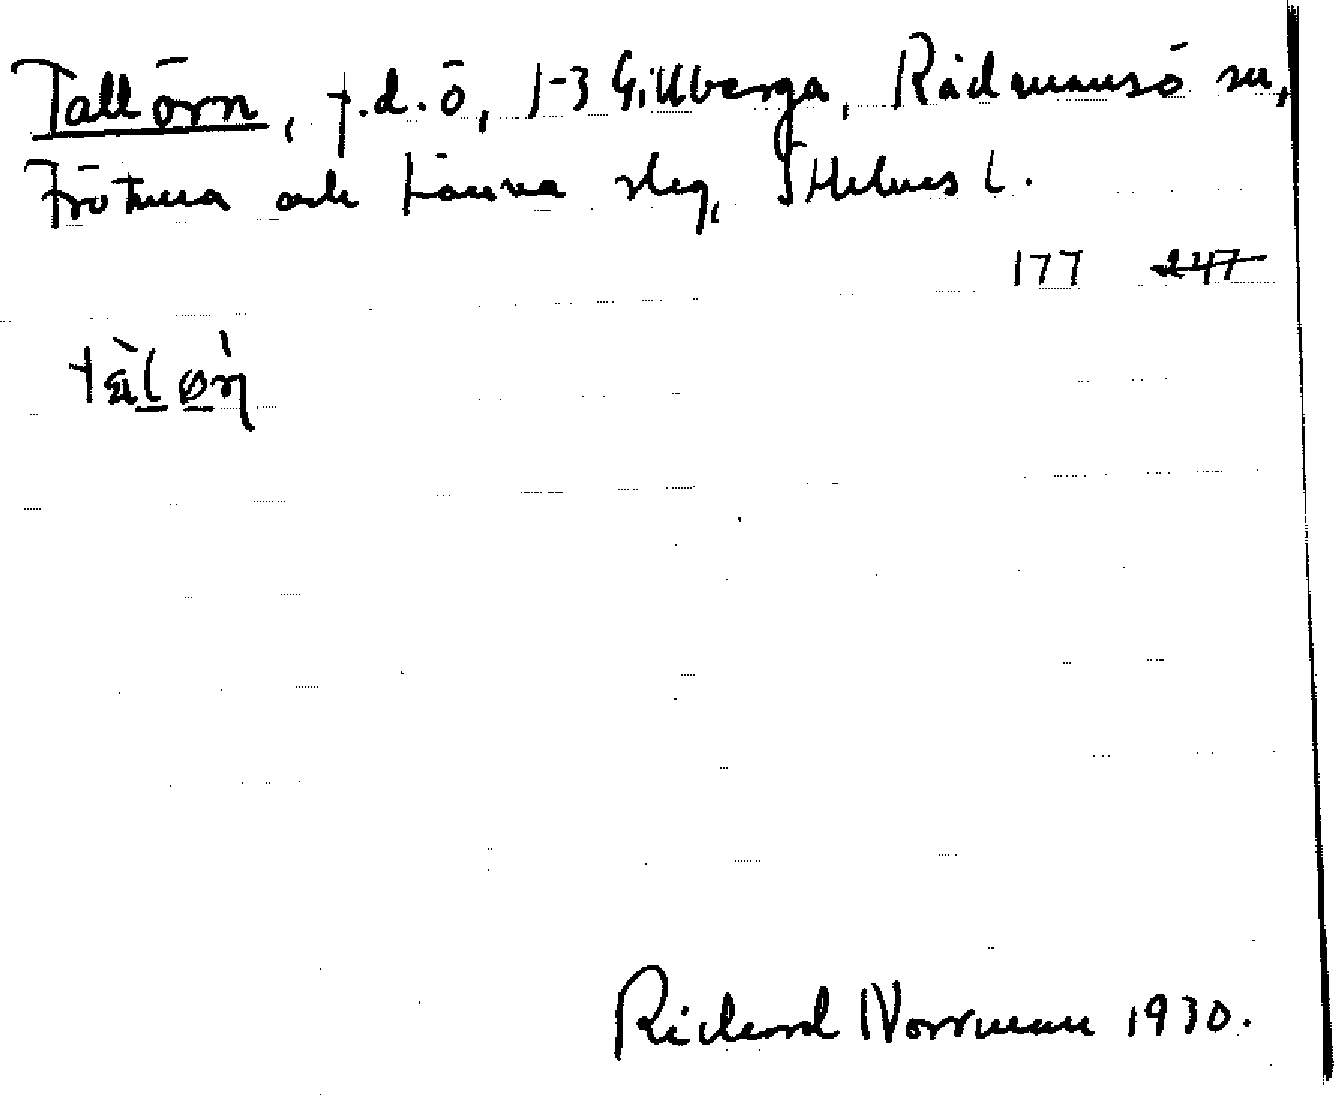 Tallörn, f.d. ö, 1-3 Gillberga, Rådmansö sn,
Frötuna och Länna slg, Sthlms l.
177 247
Richard Norrman 1930.